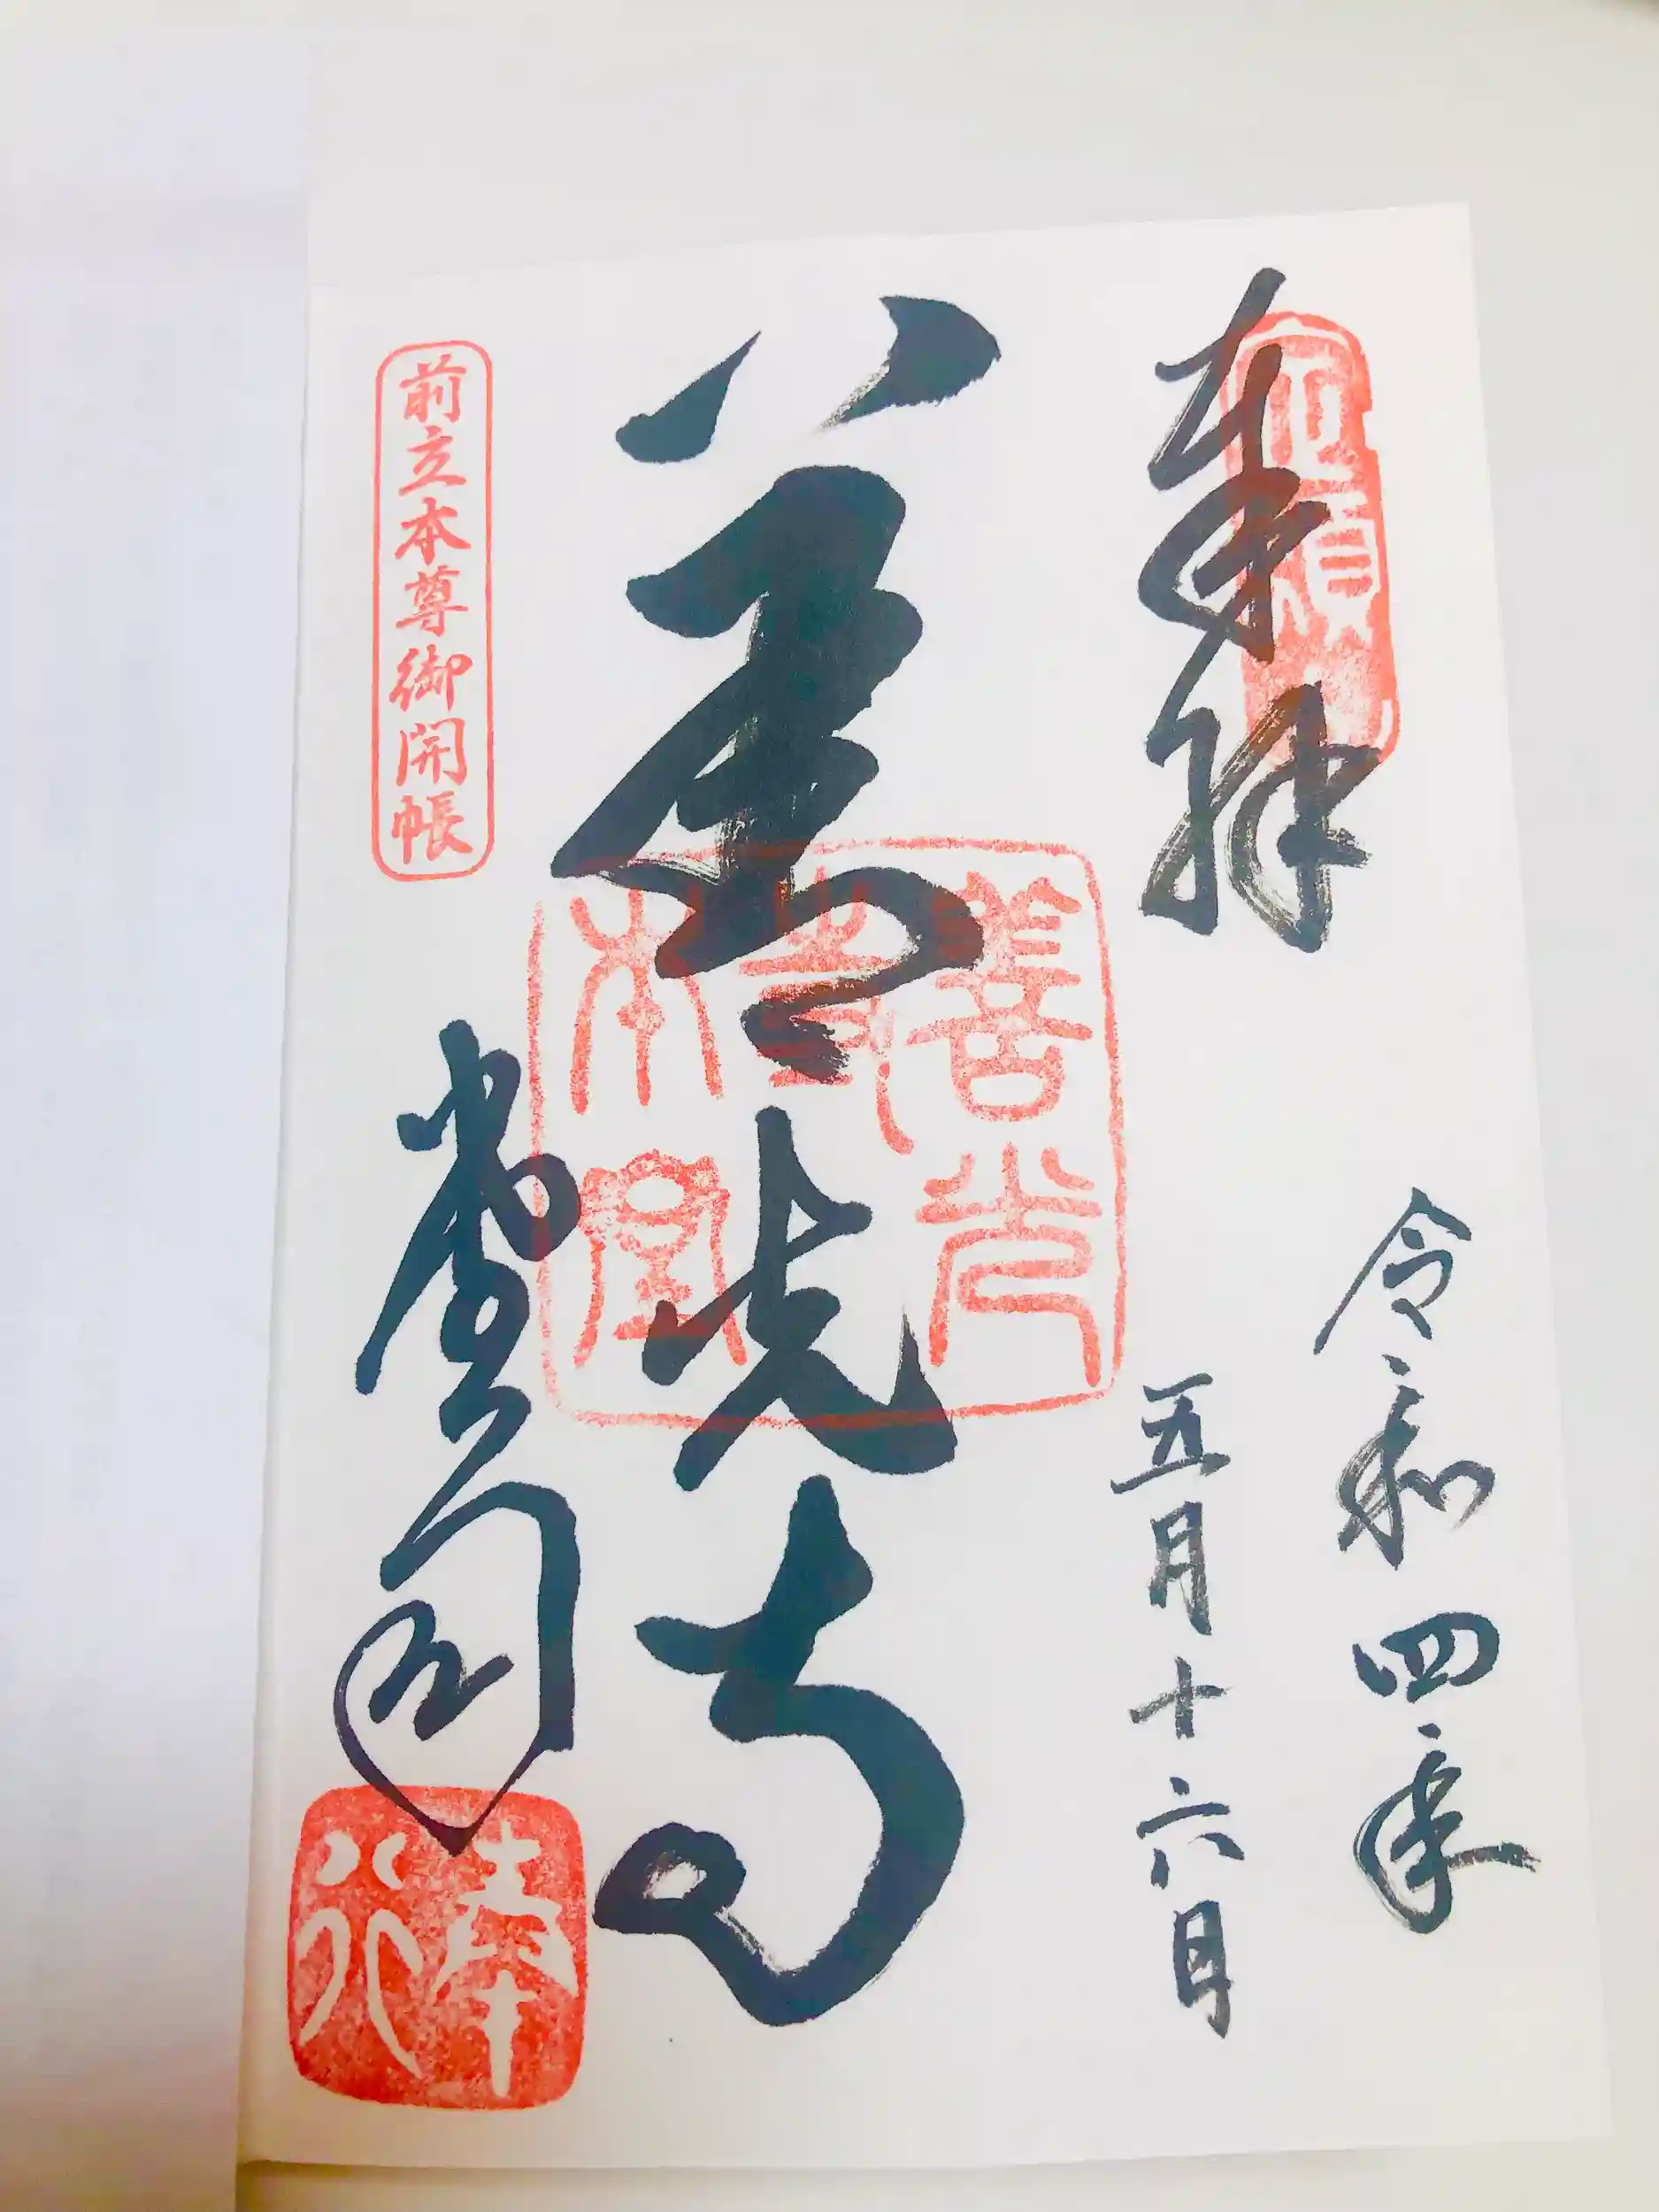 奉拝
令和四年
五月十六日
善光寺
善光
寺
本堂
前立本尊御開帳
堂司
奉行